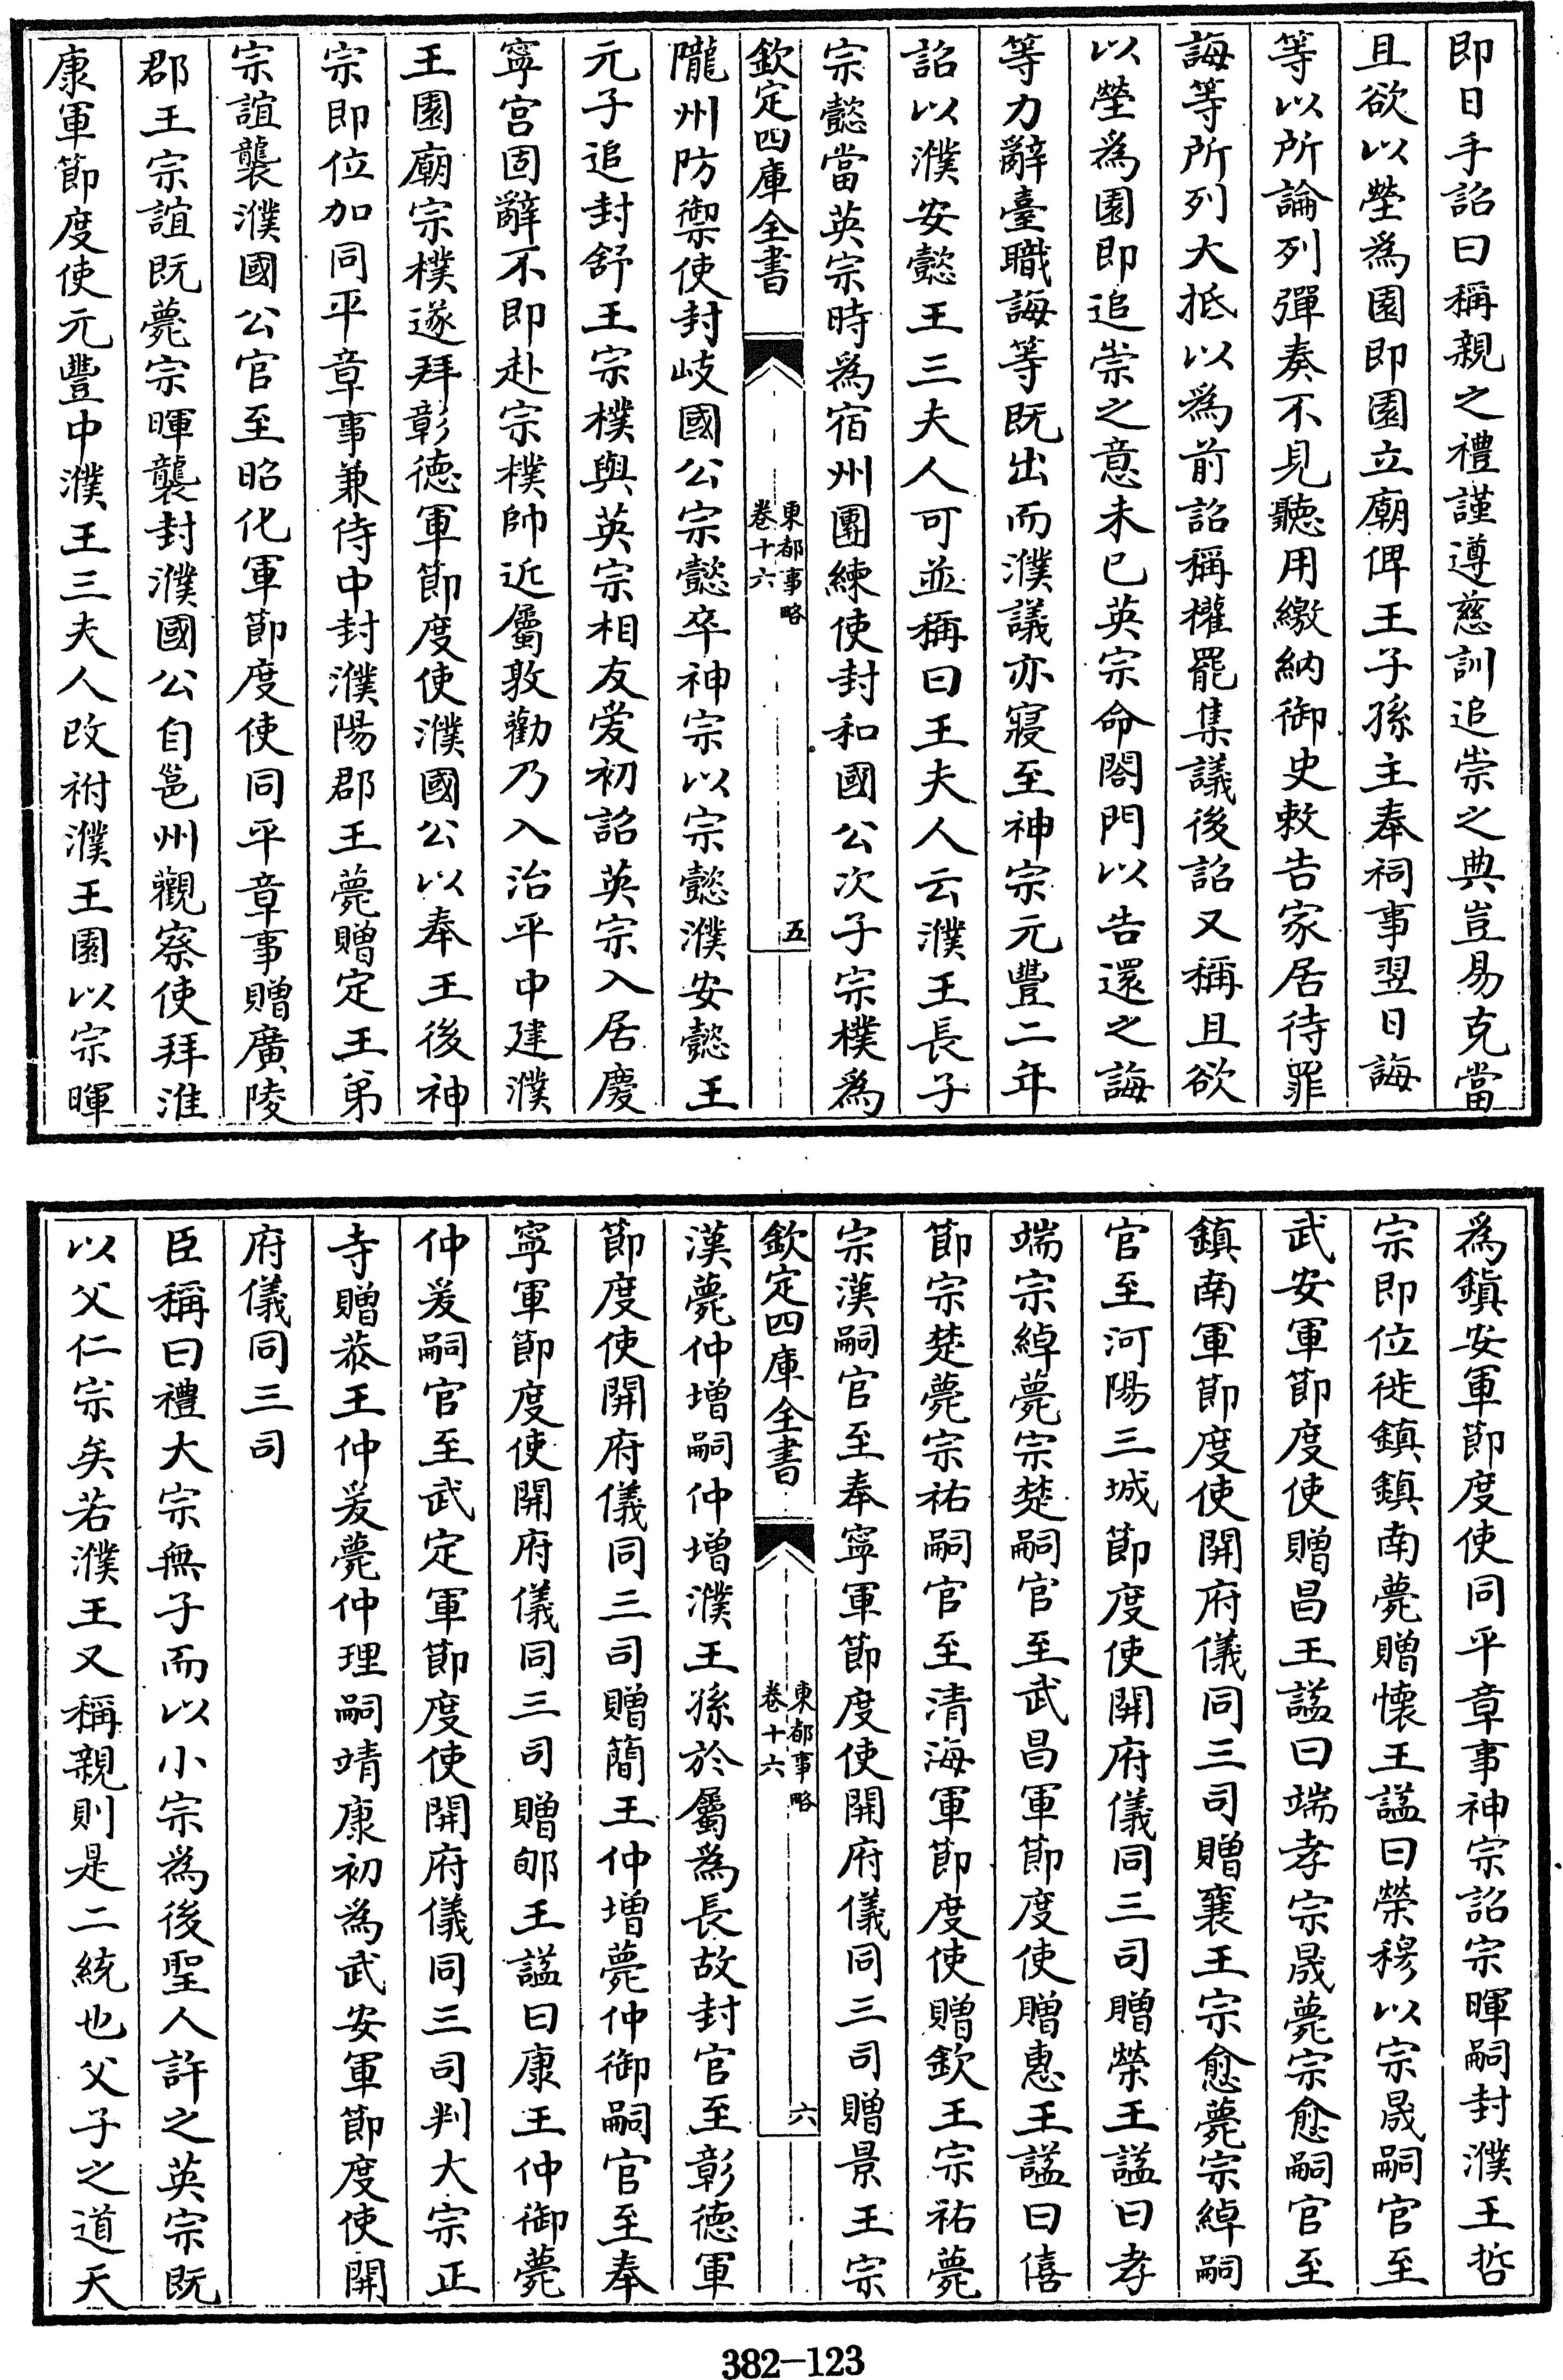 即日手詔曰稱親之禮謹遵慈訓追崇之典豈易克當
且欲以塋為園即園立廟俾王子孫主奉祠事翌日誨
等以所論列彈奏不見聽用繳納御史敕告家居待罪
誨等所列大抵以為前詔稱權罷集議後詔又稱且欲
以塋為園即追崇之意未已英宗命閤門以告還之誨
等力辭臺職誨等既出而濮議亦寢至神宗元豐二年
詔以濮安懿王三夫人可並稱曰王夫人云濮王長子
宗懿當英宗時為宿州團練使封和國公次子宗樸為
欽定四庫全書
東都事略
卷十六
五
隴州防禦使封岐國公宗懿卒神宗以宗懿濮安懿王
元子追封舒王宗樸與英宗相友爱初詔英宗入居慶
寧宫固辭不即赴宗樸帥近屬敦勸乃入治平中建濮
王園廟宗樸遂拜彰德軍節度使濮國公以奉王後神
宗即位加同平章事兼侍中封濮陽郡王薨贈定王弟
宗誼襲濮國公官至昭化軍節度使同平章事贈廣陵
郡王宗誼既薨宗暉襲封濮國公自邕州觀察使拜淮
康軍節度使元豐中濮王三夫人改祔濮王園以宗暉
為鎮安軍節度使同平章事神宗詔宗暉嗣封濮王哲
宗即位徙鎮鎮南薨贈懷王諡曰榮穆以宗晟嗣官至
武安軍節度使贈昌王諡曰端孝宗晟薨宗愈嗣官至
鎮南軍節度使開府儀同三司贈襄王宗愈薨宗綽嗣
官至河陽三城節度使開府儀同三司贈榮王諡曰孝
端宗綽薨宗楚嗣官至武昌軍節度使贈惠王諡曰僖
節宗楚薨宗祐嗣官至清海軍節度使贈欽王宗祐薨
宗漢嗣官至奉寧軍節度使開府儀同三司贈景王宗
欽定四庫全書
東都事略
卷十六
六
漢薨仲增嗣仲增濮王孫於屬為長故封官至彰德軍
節度使開府儀同三司贈簡王仲增薨仲御嗣官至奉
寧軍節度使開府儀同三司贈郇王諡曰康王仲御薨
仲爰嗣官至武定軍節度使開府儀同三司判大宗正
寺贈恭王仲爰薨仲理嗣靖康初為武安軍節度使開
府儀同三司
臣稱曰禮大宗無子而以小宗為後聖人許之英宗既
以父仁宗矣若濮王又稱親則是二統也父子之道天
382-123